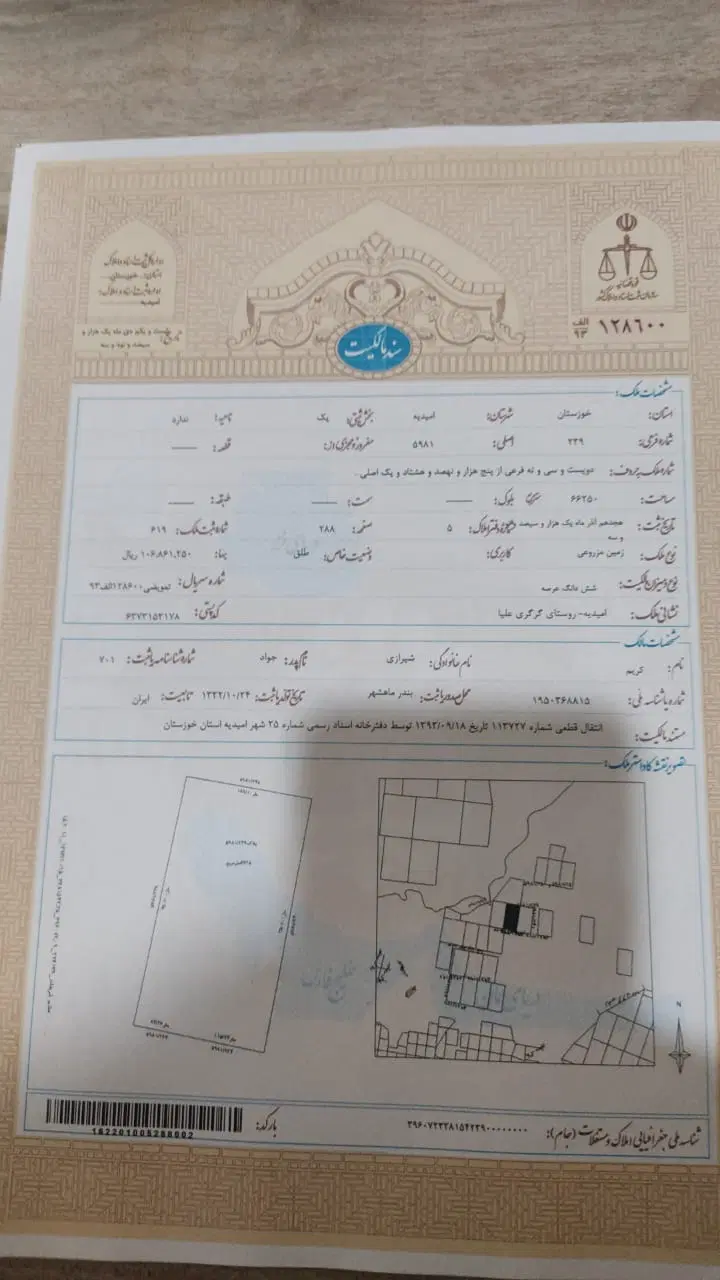 اداره کل ثبت اسناد و املاک
استان: خوزستان
اداره ثبت اسناد و املاک:
امیدیه
تاریخ: بیست و یکم دی ماه یک هزار و
سیصد و نود و سه
قوه قضائیه
سازمان ثبت اسناد و املاک کشور
۱۲۸۶۰۰ الف ۹۳
سند مالکیت
مشخصات ملک:
استان: خوزستان شهرستان: امیدیه بخش ثبتی: یک ناحیه: ندارد
شماره فرعی: ۲۳۹ اصلی: ۵۹۸۱ مفروز و مجزی از: قطعه: ——
شماره ملک به حروف: دویست و سی و نه فرعی از پنج هزار و نهصد و هشتاد و یک اصلی
مساحت: ۶۶۲۵۰ بلوک: —— سمت: —— طبقه: ——
تاریخ ثبت: هجدهم آذر ماه یک هزار و سیصد و سه شماره دفتر املاک: ۵ صفحه: ۲۸۸ شماره ثبت ملک: ۶۱۹
نوع ملک: زمین مزروعی کاربری: وضعیت خاص: طلق بهاء: ۱۰۶،۸۶۱،۲۵۰ ریال
نوع و میزان مالکیت: شش دانگ عرصه شماره سریال: تعویضی۱۲۸۶۰۰الف۹۳
نشانی ملک: امیدیه- روستای گرگری علیا کد پستی: ۶۳۷۳۱۵۳۱۷۸
مشخصات مالک:
نام: کریم نام خانوادگی: شیرازی نام پدر: جواد شماره شناسنامه یا ثبت: ۷۰۱
شماره یا شناسه ملی: ۱۹۵۰۳۶۸۸۱۵ محل صدور یا ثبت: بندر ماهشهر تاریخ تولد یا ثبت: ۱۳۲۲/۱۰/۲۴ تابعیت: ایران
مستند مالکیت: انتقال قطعی شماره ۱۱۳۷۲۷ تاریخ ۱۳۹۳/۰۹/۱۸ توسط دفترخانه اسناد رسمی شماره ۲۵ شهر امیدیه استان خوزستان
تصویر نقشه کاداستر ملک:
N
خلیج فارس
دریای عمان
شناسه ملی جغرافیایی املاک و مستغلات (جام): ۳۹۶۰۷۲۳۳۸۱۵۴۲۳۹۰۰۰۰۰۰۰۰۰
بارکد:
162201005288002